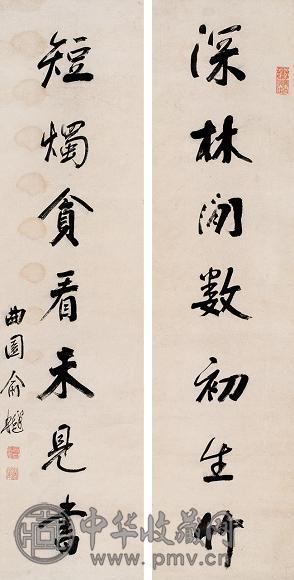 深林閒數初生竹
短燭貪看未見書
曲園俞樾
中华收藏网
www.pmv.cn